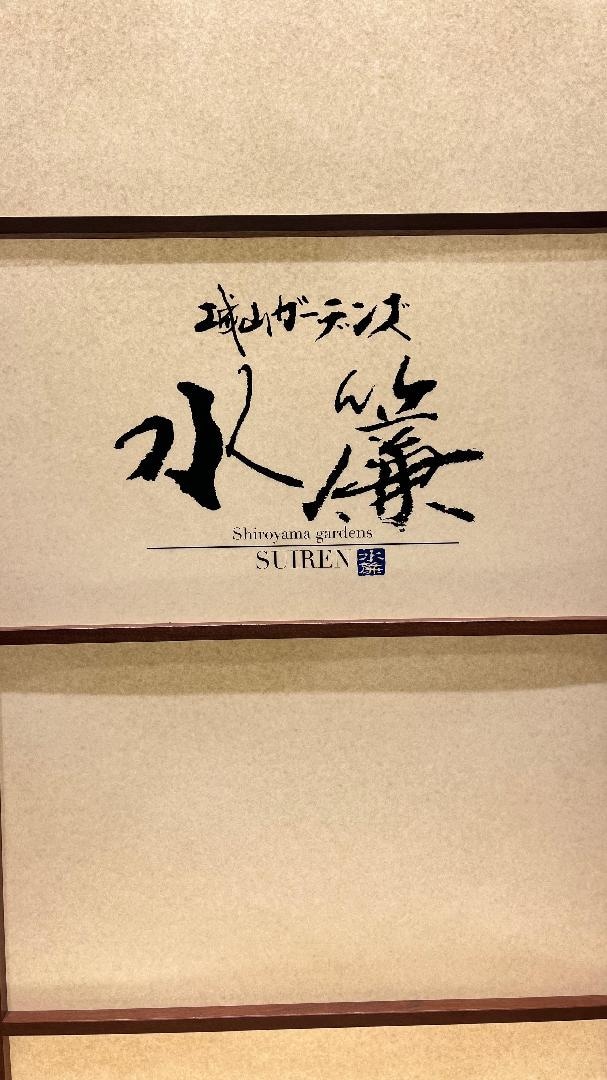 城山ガーデンズ
水簾
Shiroyama gardens
SUIREN 水簾